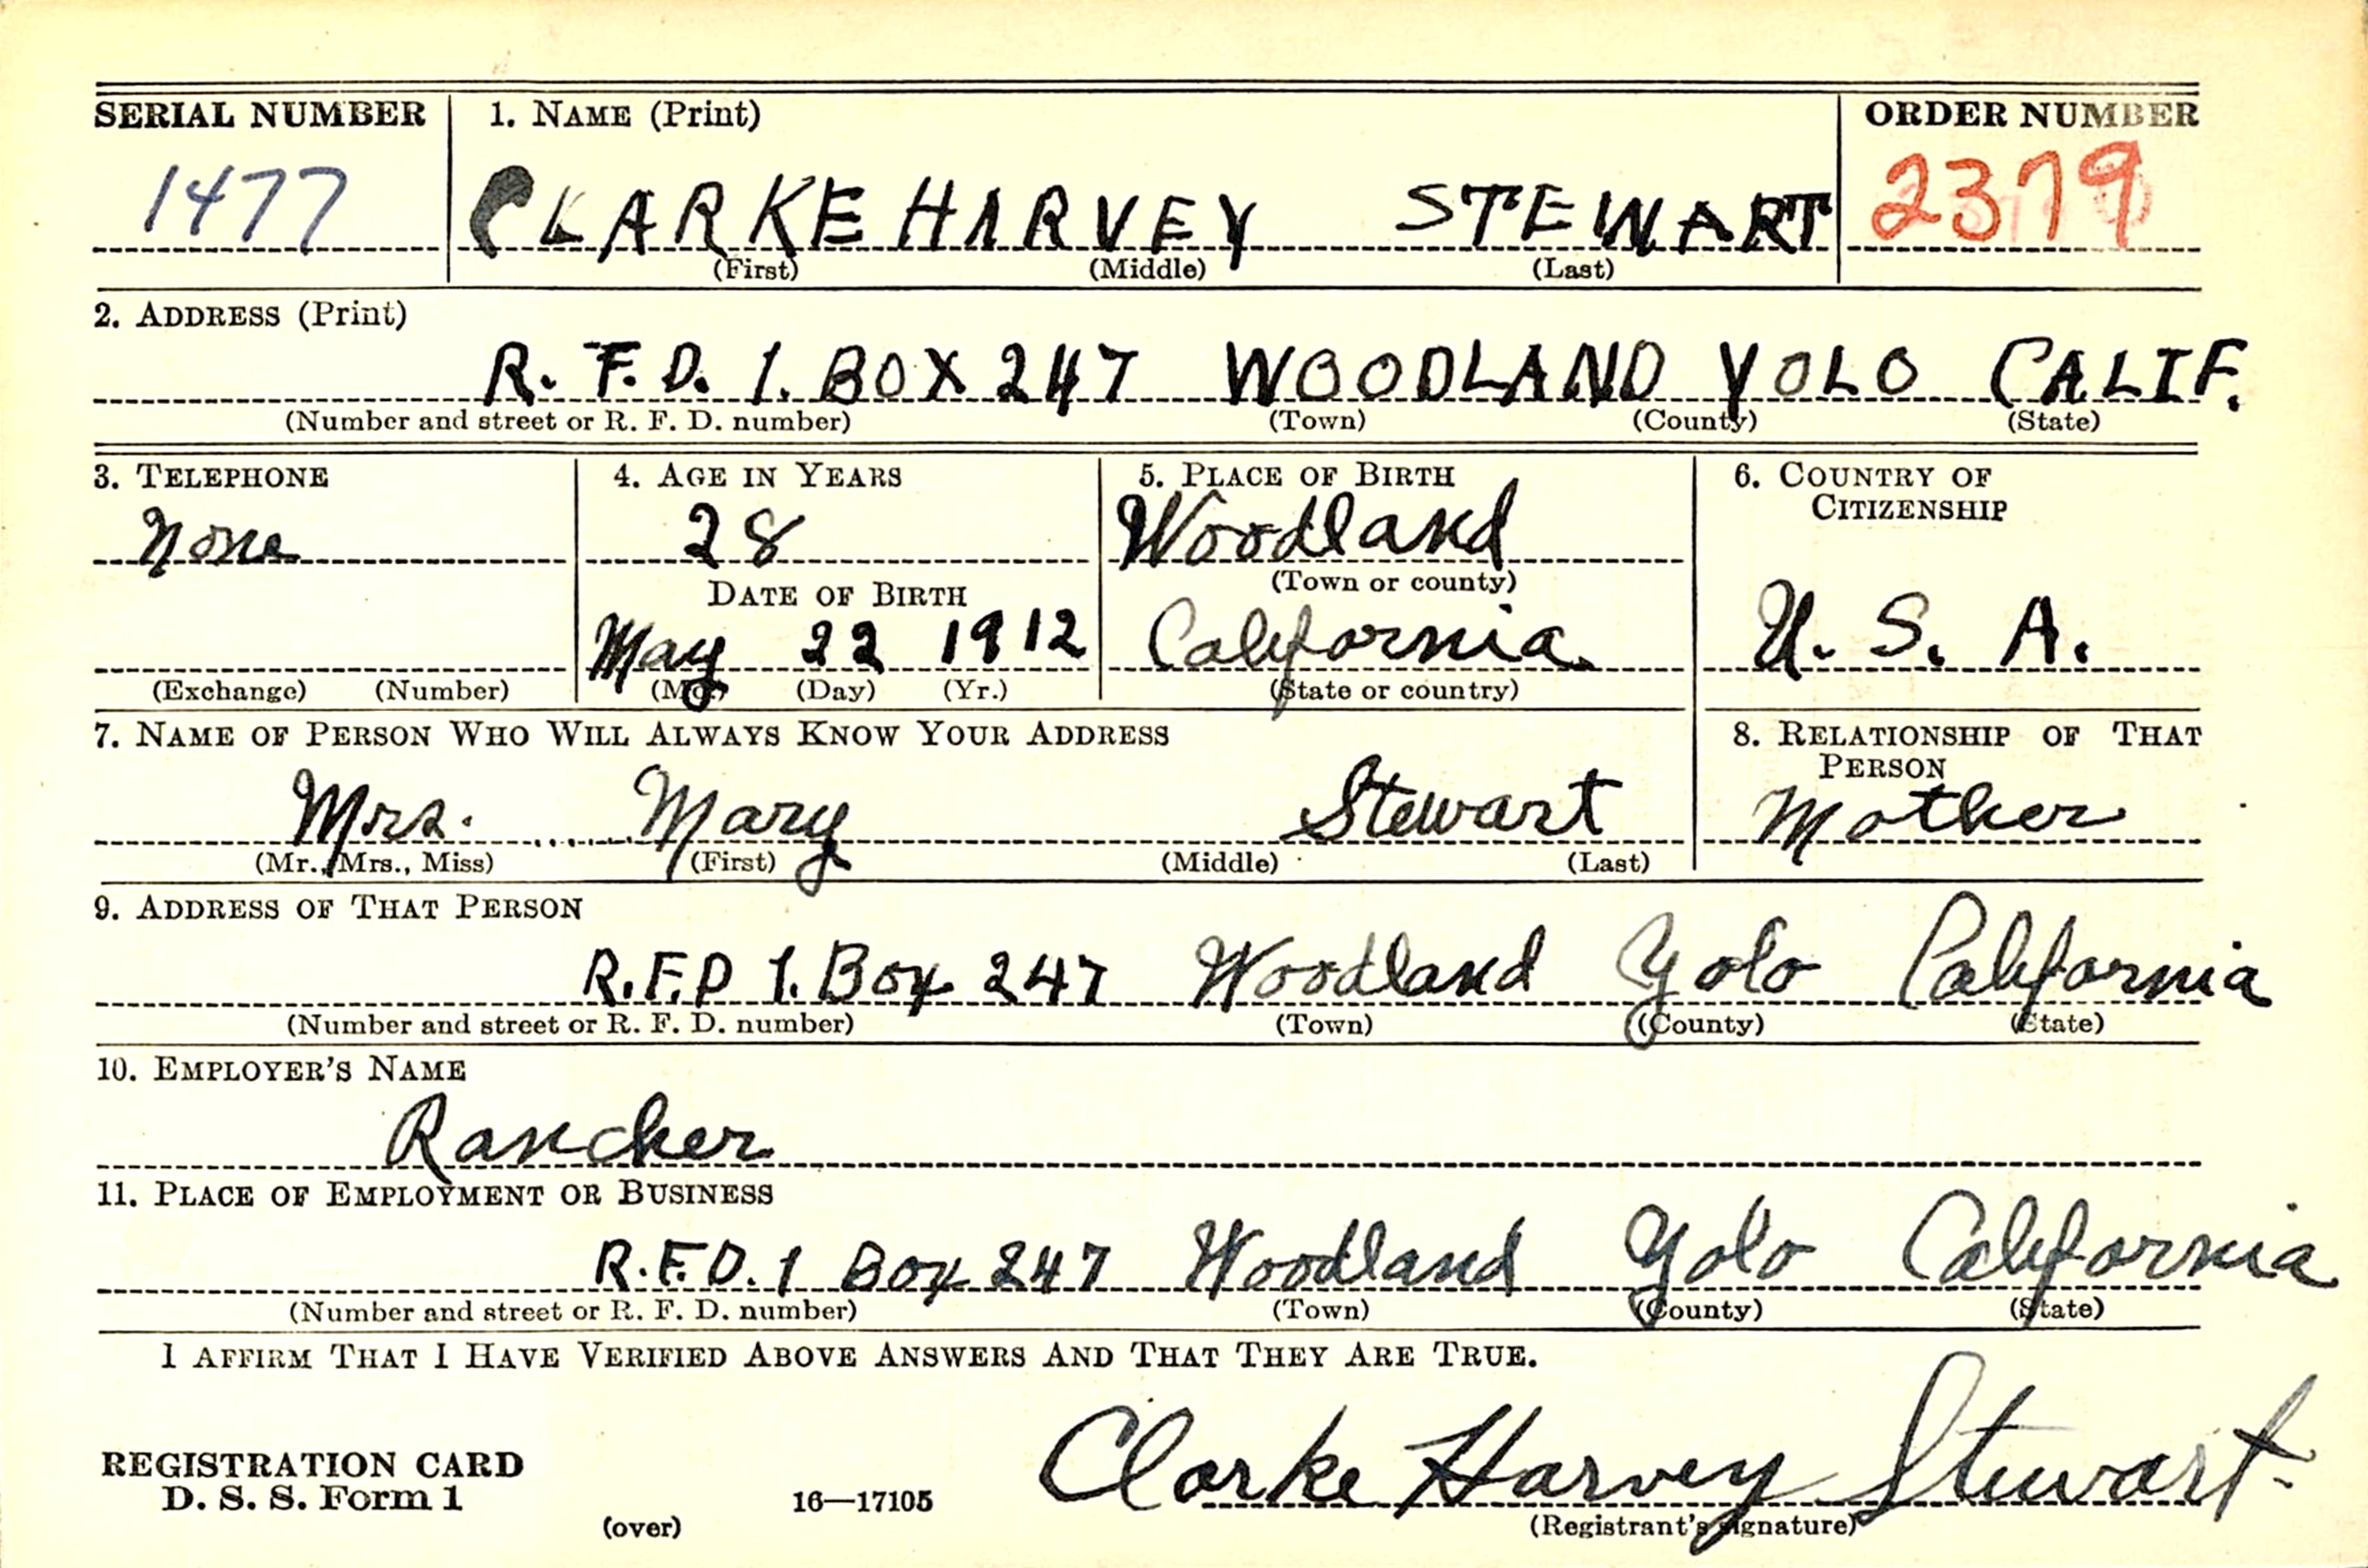 SERIAL NUMBER 1. NAME (Print) ORDER NUMBER
1477 CLARKE HARVEY STEWART 2379
(First) (Middle) (Last)
2. ADDRESS (Print)
R. F. D. 1. BOX 247 WOODLAND YOLO CALIF.
(Number and street or R. F. D. number) (Town) (County) (State)
3. TELEPHONE 4. AGE IN YEARS 5. PLACE OF BIRTH 6. COUNTRY OF
CITIZENSHIP
None 28 Woodland
DATE OF BIRTH (Town or county)
May 22 1912 California U. S. A.
(Exchange) (Number) (Mo.) (Day) (Yr.) (State or country)
7. NAME OF PERSON WHO WILL ALWAYS KNOW YOUR ADDRESS 8. RELATIONSHIP OF THAT
PERSON
Mrs. Mary Stewart Mother
(Mr., Mrs., Miss) (First) (Middle) (Last)
9. ADDRESS OF THAT PERSON
R.F.D 1. Box 247 Woodland Yolo California
(Number and street or R. F. D. number) (Town) (County) (State)
10. EMPLOYER'S NAME
Rancher
11. PLACE OF EMPLOYMENT OR BUSINESS
R.F.D. 1 Box 247 Woodland Yolo California
(Number and street or R. F. D. number) (Town) (County) (State)
I AFFIRM THAT I HAVE VERIFIED ABOVE ANSWERS AND THAT THEY ARE TRUE.
REGISTRATION CARD Clarke Harvey Stewart
D. S. S. Form 1 16—17105
(over) (Registrant's signature)